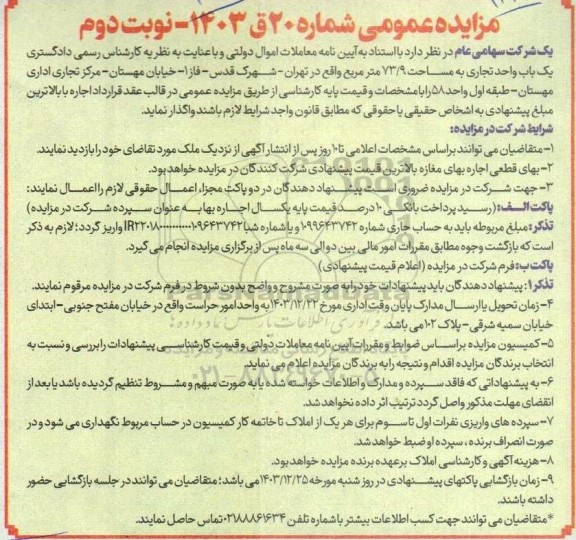 مزایده عمومی شماره ۲۰ ق ۱۴۰۳ - نوبت دوم
یک شرکت سهامی عام در نظر دارد با استناد به آیین نامه معاملات اموال دولتی و با عنایت به نظریه کارشناس رسمی دادگستری
یک باب واحد تجاری به مساحت ۷۳/۹ متر مربع واقع در تهران - شهرک قدس - فاز۱- خیابان مهستان- مرکز تجاری اداری
مهستان- طبقه اول واحد ۵۸ را با مشخصات و قیمت پایه کارشناسی از طریق مزایده عمومی در قالب عقد قرارداد اجاره با بالاترین
مبلغ پیشنهادی به اشخاص حقیقی یا حقوقی که مطابق قانون واجد شرایط لازم باشند واگذار نماید.
شرایط شرکت در مزایده:
۱- متقاضیان می توانند براساس مشخصات اعلامی تا ۱۰ روز پس از انتشار آگهی از نزدیک ملک مورد تقاضای خود را بازدید نمایند.
۲- بهای قطعی اجاره بهای مغازه بالاترین قیمت پیشنهادی شرکت کنندگان در مزایده خواهد بود.
۳- جهت شرکت در مزایده ضروری است پیشنهاد دهندگان در دو پاکت مجزا، اعمال حقوقی لازم را اعمال نمایند:
پاکت الف: (رسید پرداخت بانکی ۱۰ درصد قیمت پایه یکسال اجاره بها به عنوان سپرده شرکت در مزایده)
تذکر: مبلغ مربوطه باید به حساب جاری شماره ۱۰۹۹۶۴۳۷۴۲ و یا شماره شبا واریز گردد؛ لازم به ذکر
است که بازگشت وجوه مطابق مقررات امور مالی بین دو الی سه ماه پس از برگزاری مزایده انجام می گیرد.
پاکت ب: فرم شرکت در مزایده (اعلام قیمت پیشنهادی)
تذکر۱: پیشنهاد دهندگان باید پیشنهادات خود را به صورت مشروح و واضح بدون شروط در فرم شرکت در مزایده مرقوم نمایند.
۴- زمان تحویل یا ارسال مدارک پایان وقت اداری مورخ ۱۴۰۳/۱۲/۲۲ به واحد امور حراست واقع در خیابان مفتح جنوبی- ابتدای
خیابان سمیه شرقی- پلاک ۱۰۲ می باشد.
۵- کمیسیون مزایده براساس ضوابط و مقررات آیین نامه معاملات دولتی و قیمت کارشناسی پیشنهادات را بررسی و نسبت به
انتخاب برندگان مزایده اقدام و نتیجه را به برندگان مزایده اعلام می نماید.
۶- به پیشنهاداتی که فاقد سپرده و مدارک و اطلاعات خواسته شده یا به صورت مبهم و مشروط تنظیم گردیده باشد یا بعد از
انقضای مهلت مذکور واصل گردد ترتیب اثر داده نخواهد شد.
۷- سپرده های واریزی نفرات اول تا سوم برای هر یک از املاک تا خاتمه کار کمیسیون در حساب مربوط نگهداری می شود و در
صورت انصراف برنده، سپرده او ضبط خواهد شد.
۸- هزینه آگهی و کارشناسی املاک بر عهده برنده مزایده خواهد بود.
۹- زمان بازگشایی پاکتهای پیشنهادی در روز شنبه مورخه ۱۴۰۳/۱۲/۲۵ می باشد؛ متقاضیان می توانند در جلسه بازگشایی حضور
داشته باشند.
*متقاضیان می توانند جهت کسب اطلاعات بیشتر با شماره تلفن ۰۲۱۸۸۸۶۱۶۳۴ تماس حاصل نمایند.